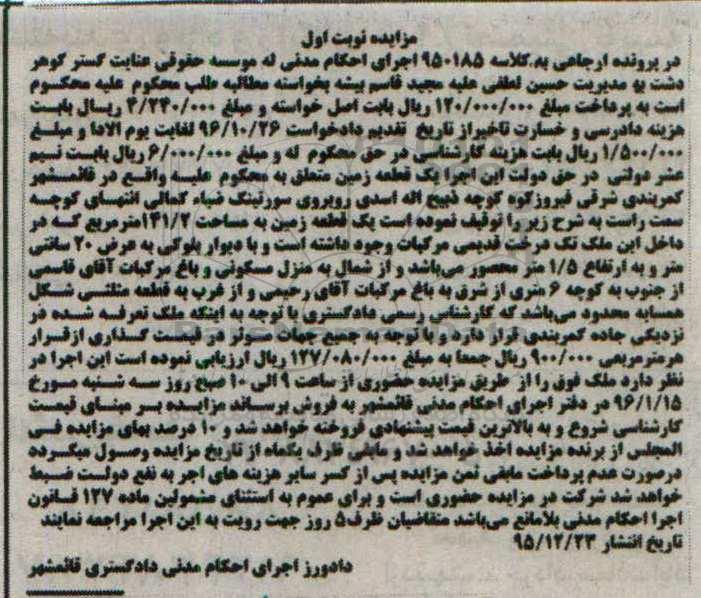 مزایده نوبت اول
در پرونده ارجاعی به کلاسه ۹۵۰۱۸۵ اجرای احکام مدنی له موسسه حقوقی عنایت گستر گوهر
دشت به مدیریت حسین لطفی علیه مجید قاسم بیشه بخواسته مطالبه طلب محکوم علیه محکوم
است به پرداخت مبلغ ۱۲۰/۰۰۰/۰۰۰ ریال بابت اصل خواسته و مبلغ ۴/۲۴۰/۰۰۰ ریال بابت
هزینه دادرسی و خسارت تاخیر از تاریخ تقدیم دادخواست ۹۴/۱۰/۲۶ لغایت یوم الادا و مبلغ
۱/۵۰۰/۰۰۰ ریال بابت هزینه کارشناسی در حق محکوم له و مبلغ ۶/۰۰۰/۰۰۰ ریال بابت نیم
عشر دولتی در حق دولت این اجرا یک قطعه زمین متعلق به محکوم علیه واقع در قائمشهر
کمربندی شرقی فیروزکوه کوچه ذبیح اله اسدی روبروی سورتینگ ضیاء کمالی انتهای کوچه
سمت راست به شرح زیر را توقیف نموده است یک قطعه زمین به مساحت ۱۴۱/۲ مترمربع که در
داخل این ملک تک درخت قدیمی مرکبات وجود داشته است و با دیوار بلوکی به عرض ۲۰ سانتی
متر و به ارتفاع ۱/۵ متر محصور می‌باشد و از شمال به منزل مسکونی و باغ مرکبات آقای قاسمی
از جنوب به کوچه ۶ متری از شرق به باغ مرکبات آقای رحیمی و از غرب به قطعه مثلثی شکل
همسایه محدود می‌باشد که کارشناس رسمی دادگستری با توجه به اینکه ملک تعرفه شده در
نزدیکی جاده کمربندی قرار دارد و با توجه به جمیع جهات موثر در قیمت گذاری از قرار
هر مترمربعی ۹۰۰/۰۰۰ ریال جمعا به مبلغ ۱۲۷/۰۸۰/۰۰۰ ریال ارزیابی نموده است این اجرا در
نظر دارد ملک فوق را از طریق مزایده حضوری از ساعت ۹ الی ۱۰ صبح روز سه شنبه مورخ
۹۶/۱/۱۵ در دفتر اجرای احکام مدنی قائمشهر به فروش برساند مزایده بر مبنای قیمت
کارشناسی شروع و به بالاترین قیمت پیشنهادی فروخته خواهد شد و ۱۰ درصد بهای مزایده فی
المجلس از برنده مزایده اخذ خواهد شد و مابقی ظرف یکماه از تاریخ مزایده وصول میگردد
درصورت عدم پرداخت مابقی ثمن مزایده پس از کسر سایر هزینه های اجر به نفع دولت ضبط
خواهد شد شرکت در مزایده حضوری است و برای عموم به استثنای مشمولین ماده ۱۲۷ قانون
اجرا احکام مدنی بلامانع می‌باشد متقاضیان ظرف ۵ روز جهت رویت به این اجرا مراجعه نمایند
تاریخ انتشار ۹۵/۱۲/۲۳
دادورز اجرای احکام مدنی دادگستری قائمشهر